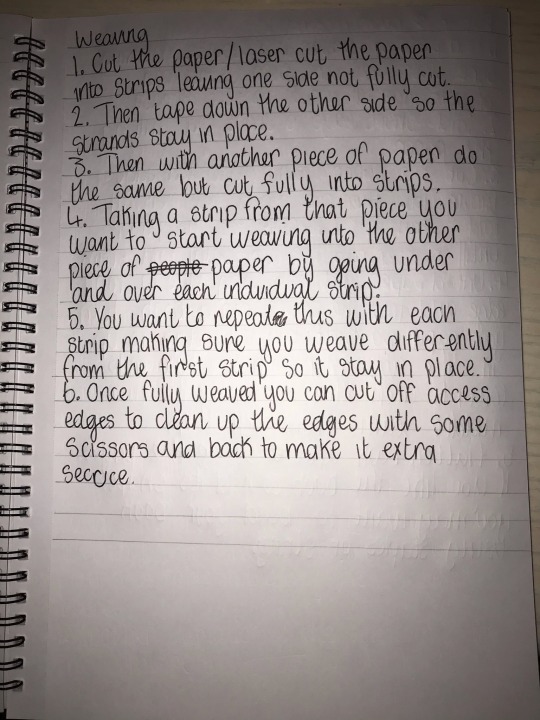 Weaving
1. Cut the paper/laser cut the paper
into strips leaving one side not fully cut.
2. Then tape down the other side so the
strands stay in place.
3. Then with another piece of paper do
the same but cut fully into strips.
4. Taking a strip from that piece you
want to start weaving into the other
piece of people paper by going under
and over each individual strip.
5. You want to repeat this with each
strip making sure you weave differently
from the first strip so it stay in place.
6. Once fully weaved you can cut off access
edges to clean up the edges with some
scissors and back to make it extra